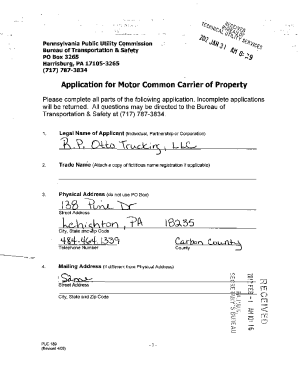 RECEIVED
BUREAU OF
TECHNICAL UTILITY SERVICES
2017 JAN 31 AM 8:29
Pennsylvania Public Utility Commission
Bureau of Transportation & Safety
PO Box 3265
Harrisburg, PA 17105-3265
(717) 787-3834
Application for Motor Common Carrier of Property
Please complete all parts of the following application. Incomplete applications
will be returned. All questions may be directed to the Bureau of
Transportation & Safety at (717) 787-3834
1. Legal Name of Applicant (Individual, Partnership or Corporation)
R.P. Otto Trucking, LLC
2. Trade Name (Attach a copy of fictitious name registration if applicable)
3. Physical Address (do not use PO Box)
138 Pine Dr
Street Address
Lehighton, PA 18235
City, State and Zip Code
484-464-1339 Carbon County
Telephone Number County
4. Mailing Address (If different from Physical Address)
Same
Street Address
City, State and Zip Code
RECEIVED
2017 FEB -1 AM 10:16
PA PUC
SECRETARY'S BUREAU
PUC 189
- 1 -